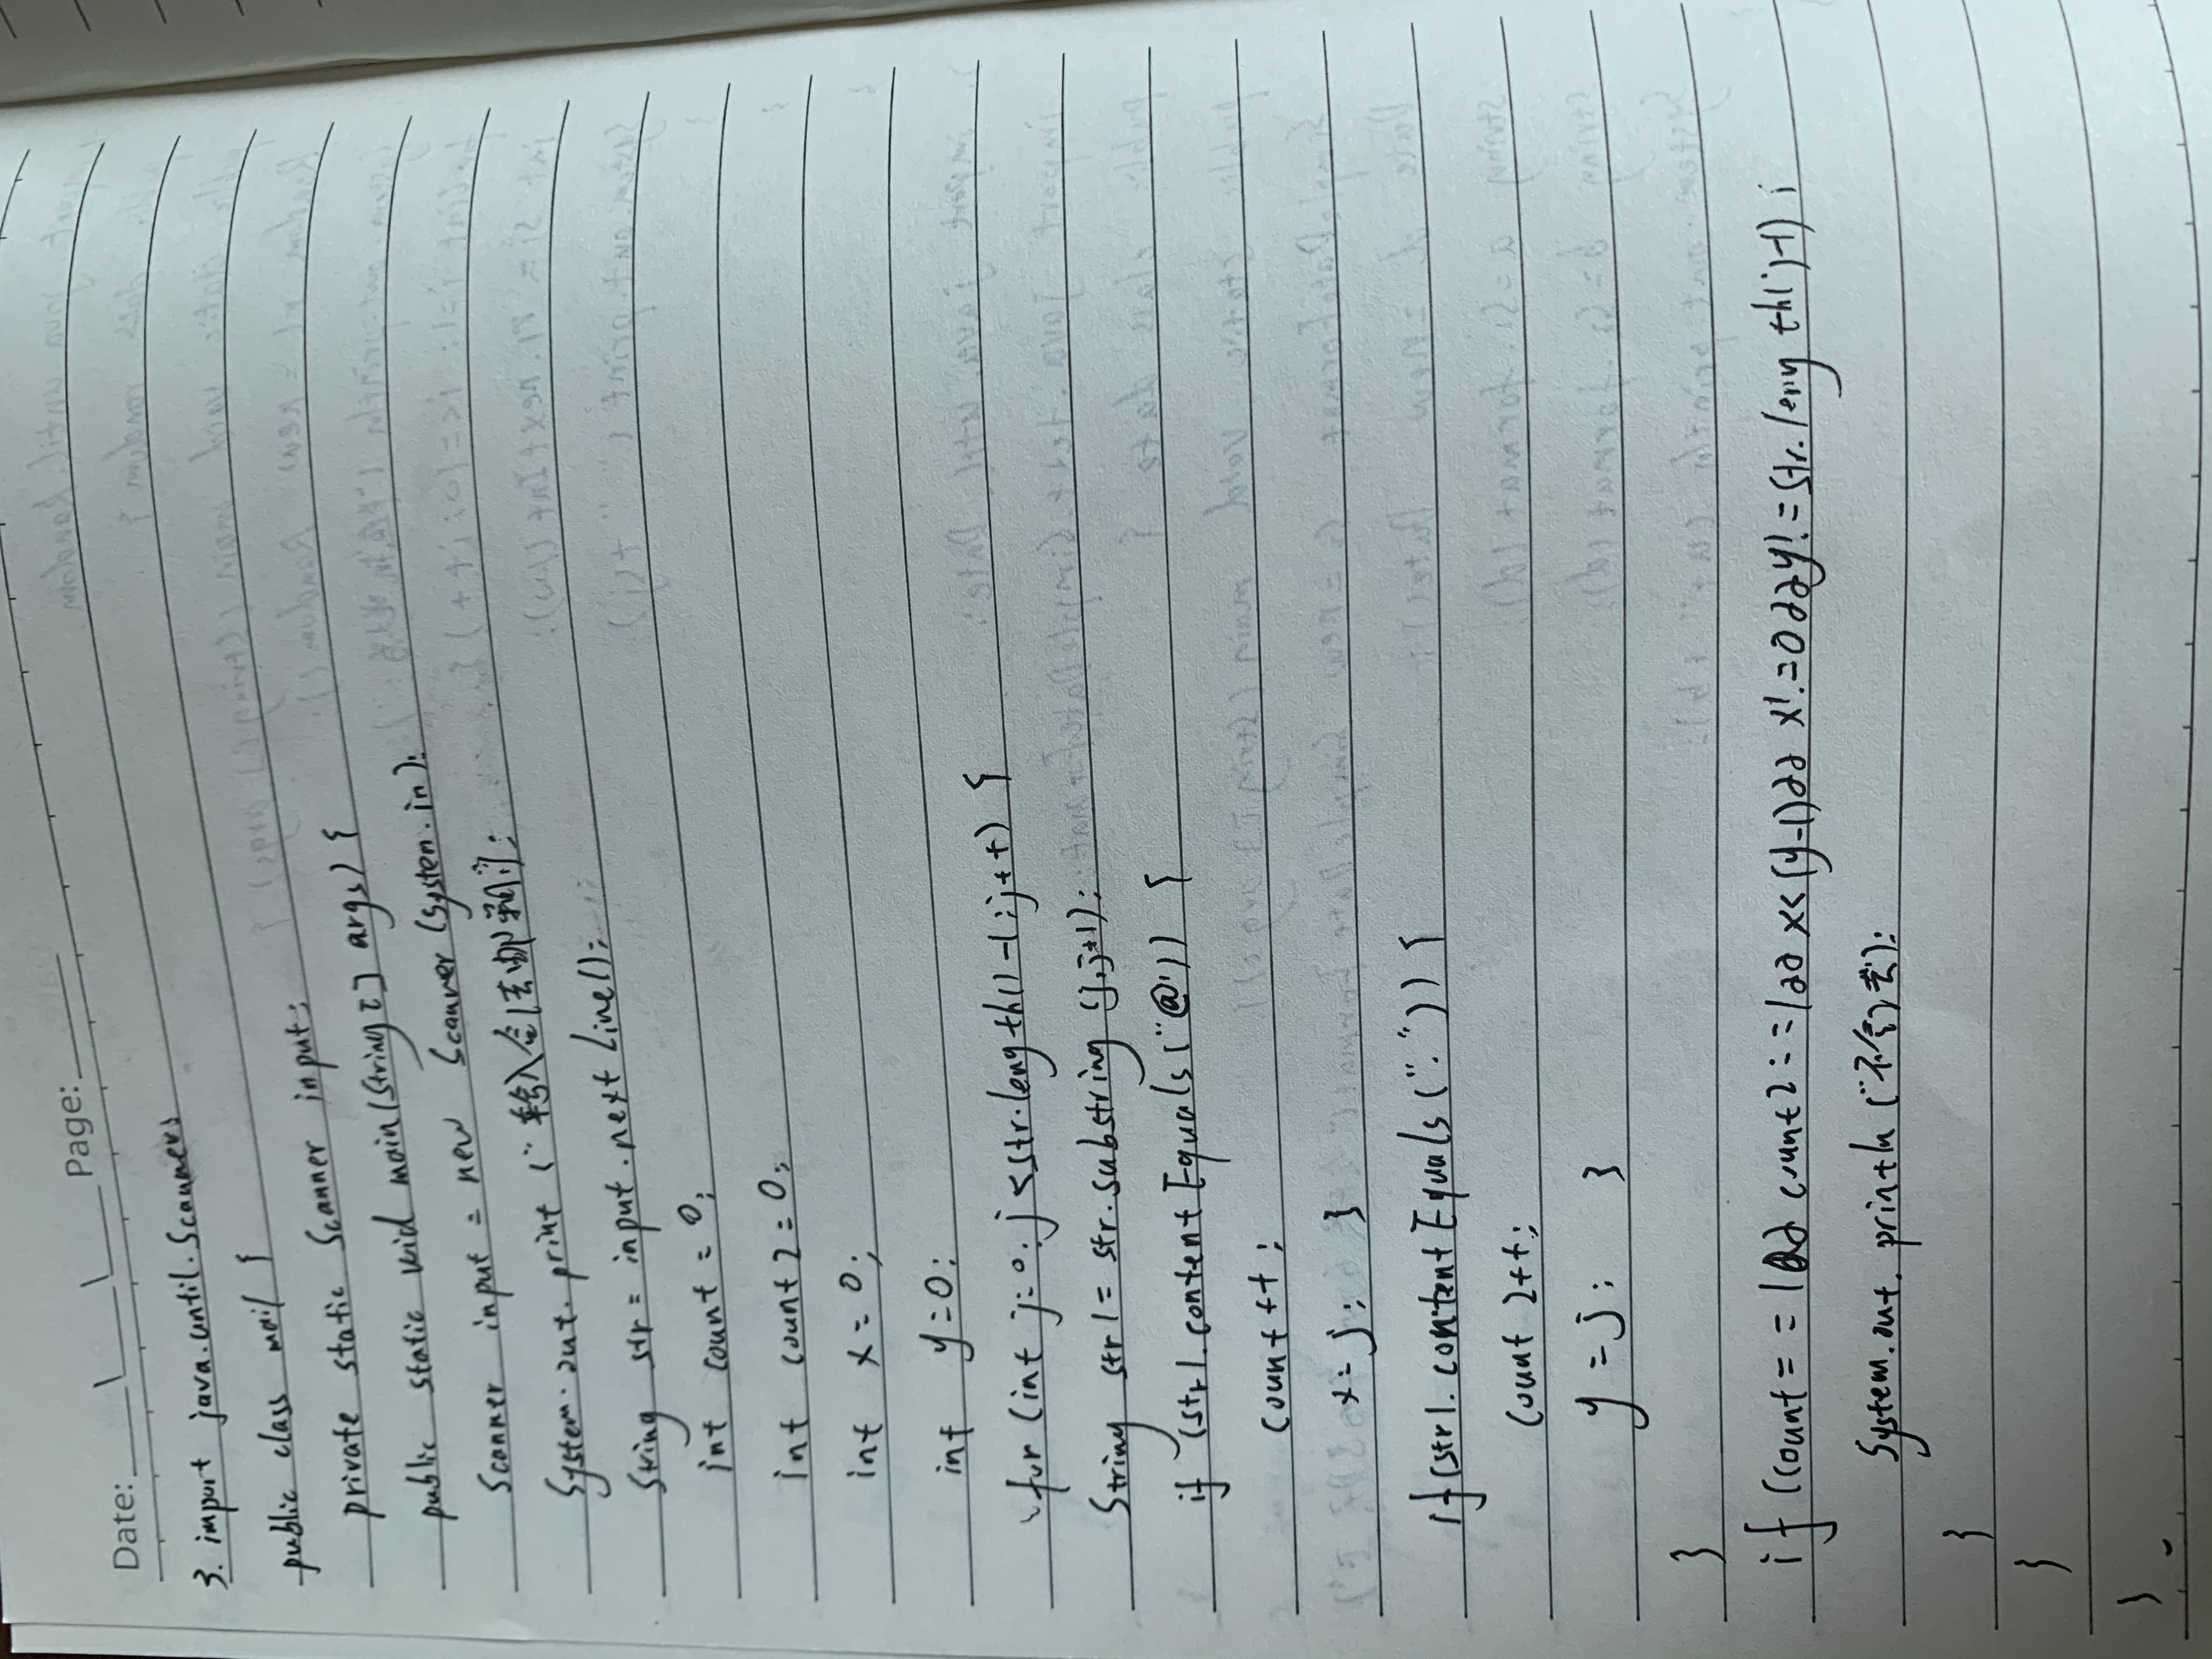 Date: \ \ Page:
3. import java.until.Scanner;
public class mail {
private static Scanner input;
public static void main(String[] args) {
Scanner input = new Scanner (System.in);
System.out.print ("
String str = input.next Line();
int count = 0;
int count 2 = 0;
int x = 0;
int y = 0;
for (int j=0; j<str.length()-1;j++) {
String str1 = str.substring (j,j+1);
if (str1.content Equals ("@")) {
count ++;
x=j; }
if (str1.content Equals (".")) {
count 2++;
y = j; }
}
if (count == 1&& count2 == 1&& x<(y-1)&& x!=0&&y!=str.leng th()-1) i
System.out.println ("不合法");
}
}
}